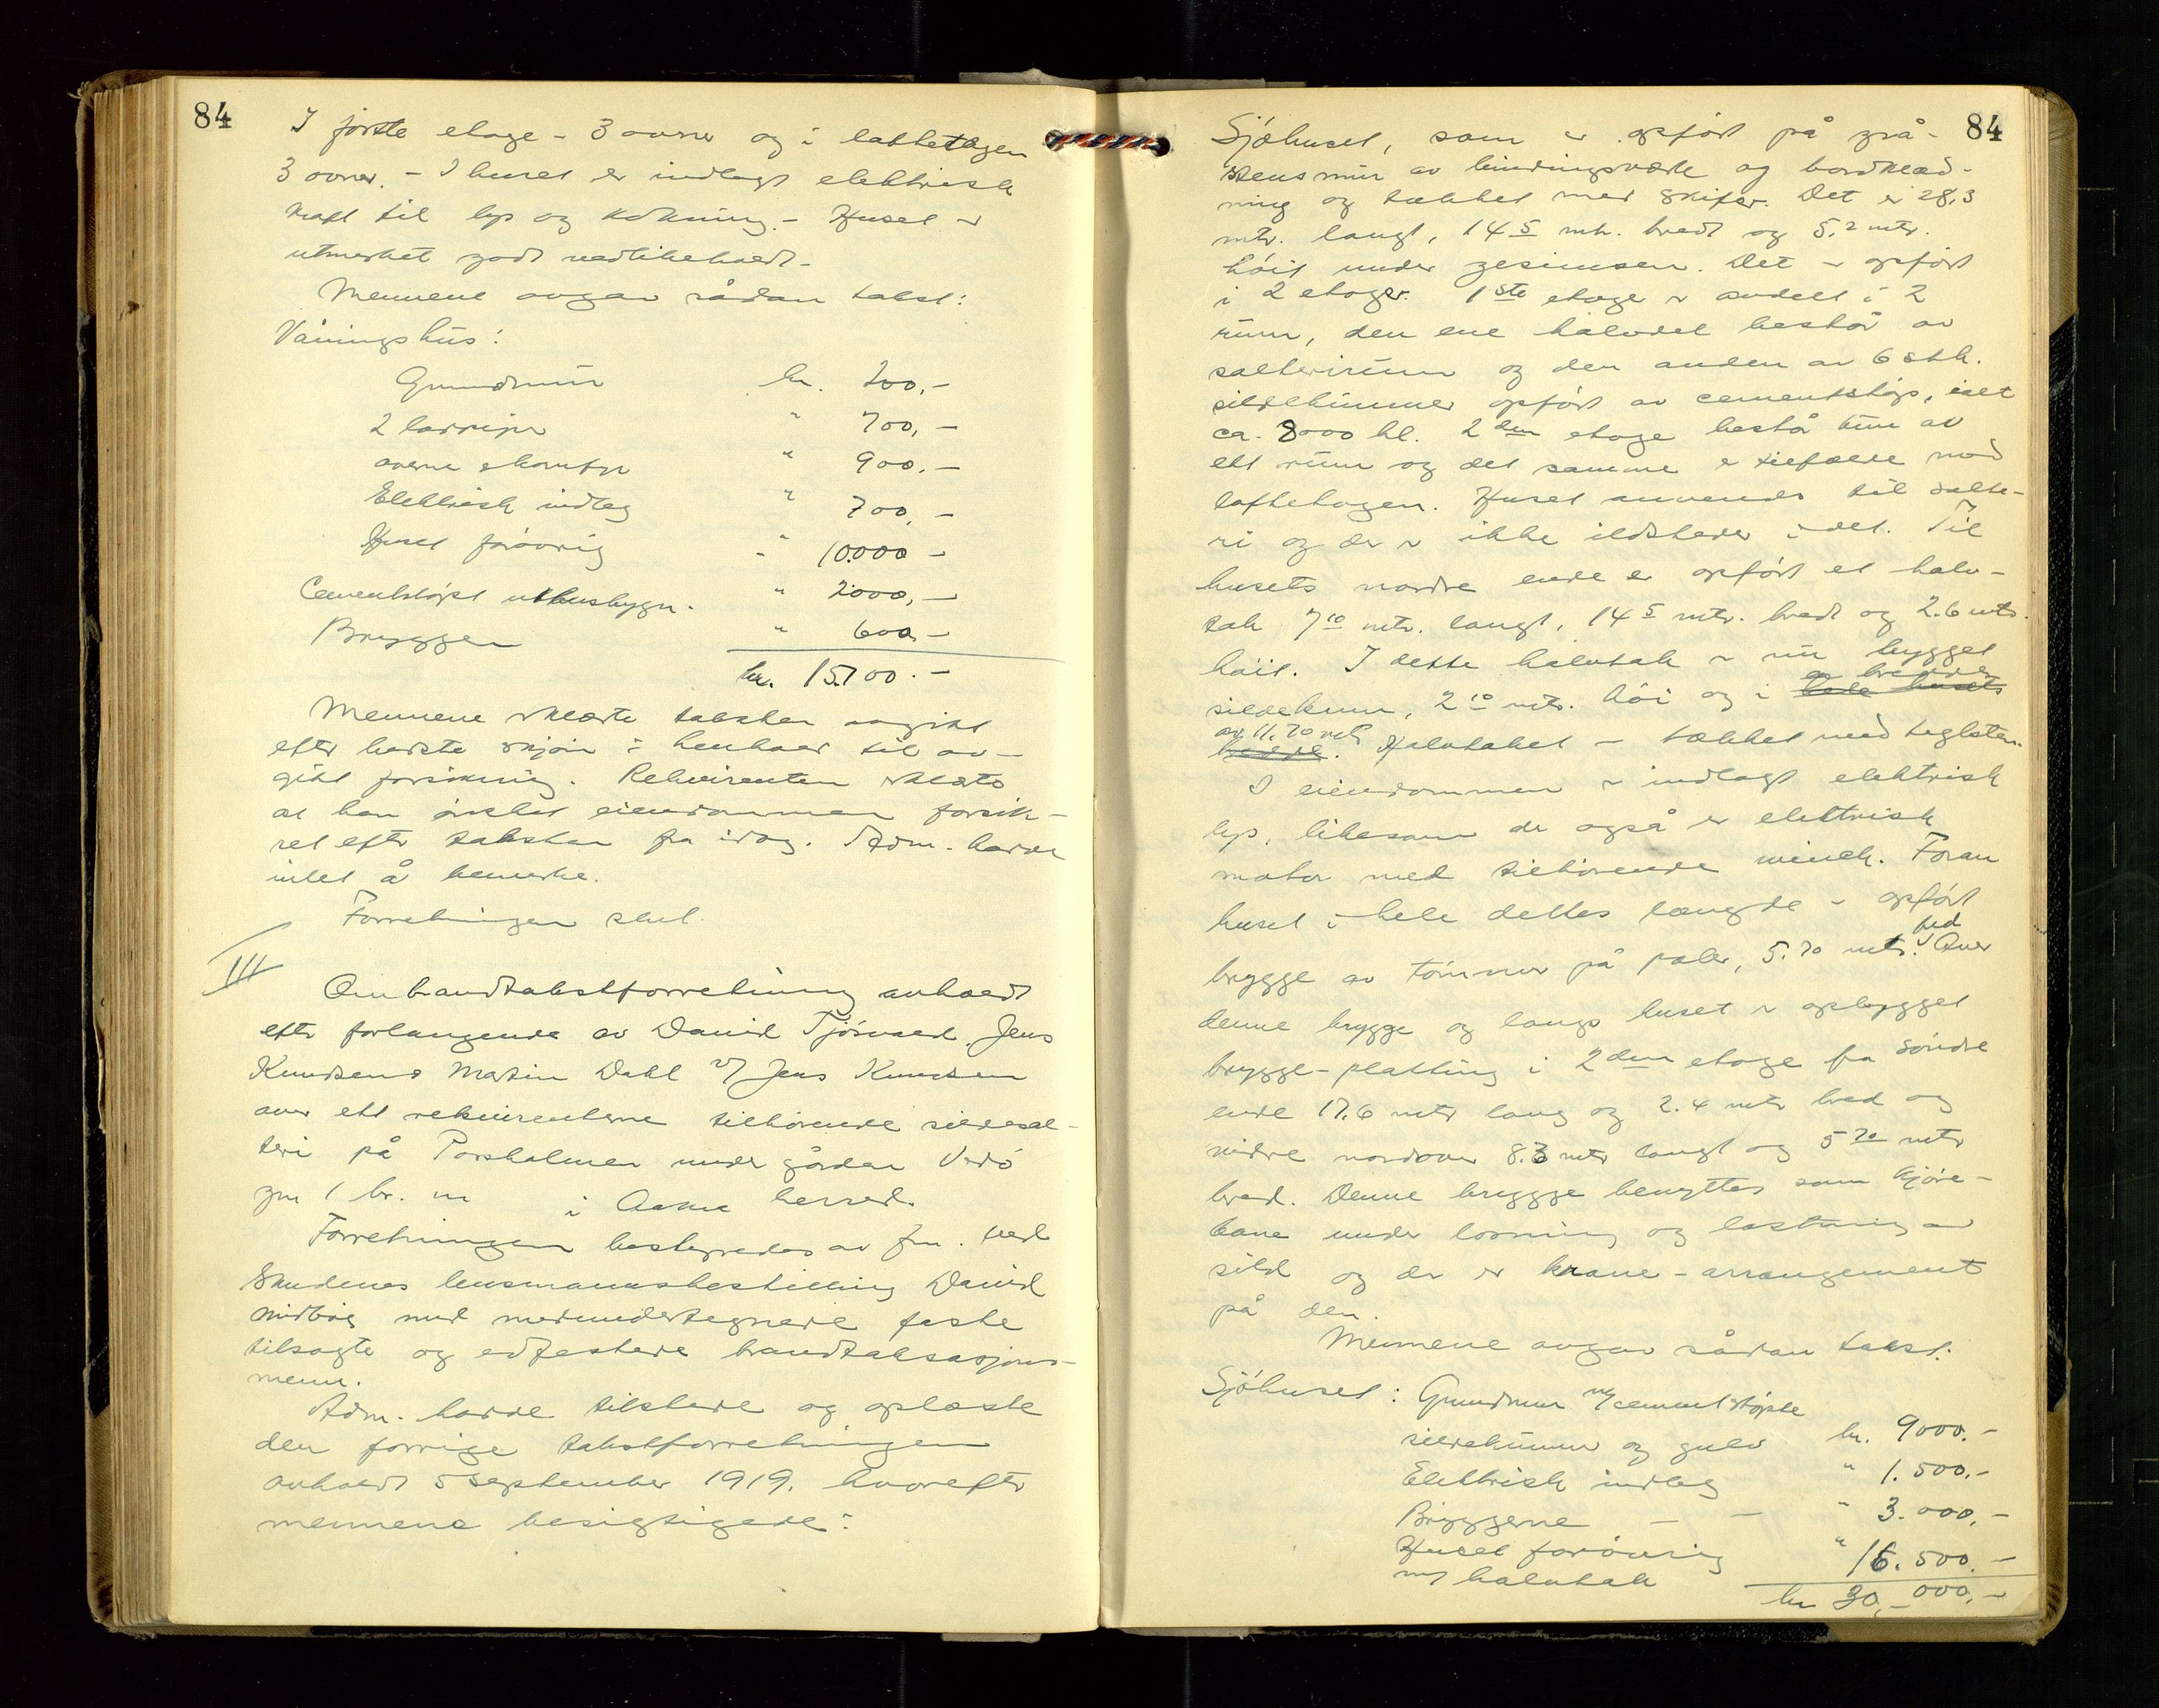 84
I første etage - 3 ovner og i loftetagen
3 ovner. - I huset er indlagt elektrisk
kraft til lys og kokning. - Huset er
utmerket godt vedlikeholdt.
Mennene avgav sådan takst:
Våningshus:
Grundmur kr. 800,-
2 løpepiper " 700,-
ovne & komfyr " 900.-
Elektrisk indlæg " 700,-
Huset forøvrig " 10000 -
Cementstøpt uthusbygn. " 2000,-
Bryggen " 600 -
kr. 15700.-
Mennene erklærte taksten avgitt
efter beste skjøn i henhold til av-
gitt forsikring. Rekvirenten erklærte
at han ønsket eiendommen forsik-
ret efter taksten fra idag. Adm. hadde
intet å bemerke.
Forretningen slut.
III
Ombrandtakstforretning avholdt
efter forlangende av David Tjøsvold, Jens
Knudsen & Martin Dahl v/ Jens Knudsen
over ett rekvirenterne tilhørende sildesal-
teri på Porsholmen under gården Vedø
gnr 1 br. nr i Aakra herred.
Forretningen bestyredes av fm. ved
Skudenes lensmannsbestilling David
Midbøe med medundertegnede faste
tilsagte og edfestede brandtaksasjons-
menn.
Adm. hadde tilstede og oplæste
den forrige takstforretningen
avholdt 5 september 1919, hvorefter
mennene besigtigede:
84
Sjøhuset, som er opført på grå-
stensmur av bindingsværk og bordklæd-
ning og tækket med skifer. Det er 28,3
mtr. langt, 14 5 mtr. bredt og 5,2 mtr.
høit under gesimsen. Det er opført
i 2 etager. 1ste etage er avdelt i 2
rum, den ene halvdel består av
salterirum og den anden av 6 stk.
sildekummer opført av cementstøp, ialt
ca. 8000 hl. 2den etage består kun av
ett rum og det samme er tilfælle med
loftetagen. Huset anvendes til salte-
ri og der er ikke ildsteder i det. Til
husets nordre ende er opført et halv-
tak 7 10 mtr. langt, 14 5 mtr. bredt og 2.6 mtr.
høit. I dette halvtak er nu bygget
sildekum, 2 10 mtr. høi og i hele husets en bredde
bredde av 11.70 mtr. Halvtaket er tækket med teglsten.
I eiendommen er indlagt elektrisk
lys, likesom der også er elektrisk
motor med tilhørende winch. Foran
huset i hele dettes længde er opført
brygge av tømmer på pæler, 5.70 mtr. bred. Over
denne brygge og langs huset er opbygget
brygge-platting i 2den etage fra søndre
ende 17.6 mtr lang og 2.4 mtr bred og
videre nordover 8.3 mtr langt og 5 70 mtr
bred. Denne brygge benyttes som kjøre-
bane under losning og lastning av
sild og der er krane-arrangement
på den.
Mennene avgav sådan takst:
Sjøhuset: Grundmur m/ cementstøpte
sildekummer og gulv kr. 9000.-
Elektrisk indlæg " 1.500.-
Bryggerne - - " 3.000,-
Huset forøvrig
m/ halvtak " 16.500.-
kr 30,-000,-